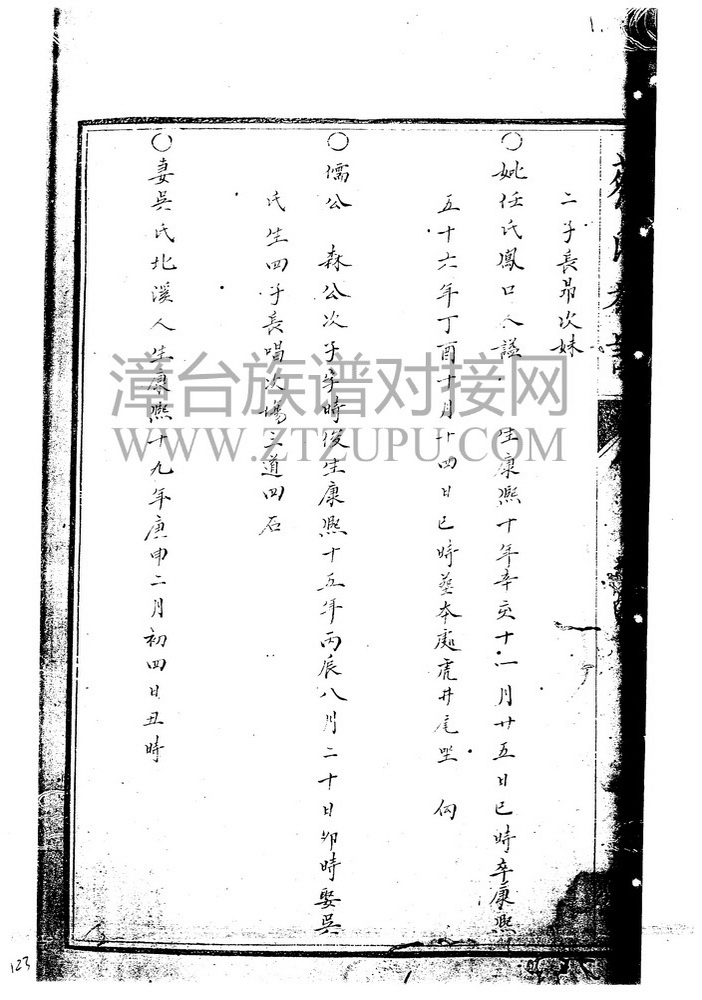 1.
二子長昴次妹
○妣任氏鳳口人謚 生康熙十年辛亥十一月廿五日巳時卒康熙
五十六年丁酉十月十四日巳時葬本處虎井尾坐 向
○儒公 森公次子字時俊生康熙十五年丙辰八月二十日卯時娶吳
氏生四子長唱次場三道四石
○妻吳氏北溪人生康熙十九年庚申二月初四日丑時
漳台族谱对接网
WWW.ZTZUPU.COM
123